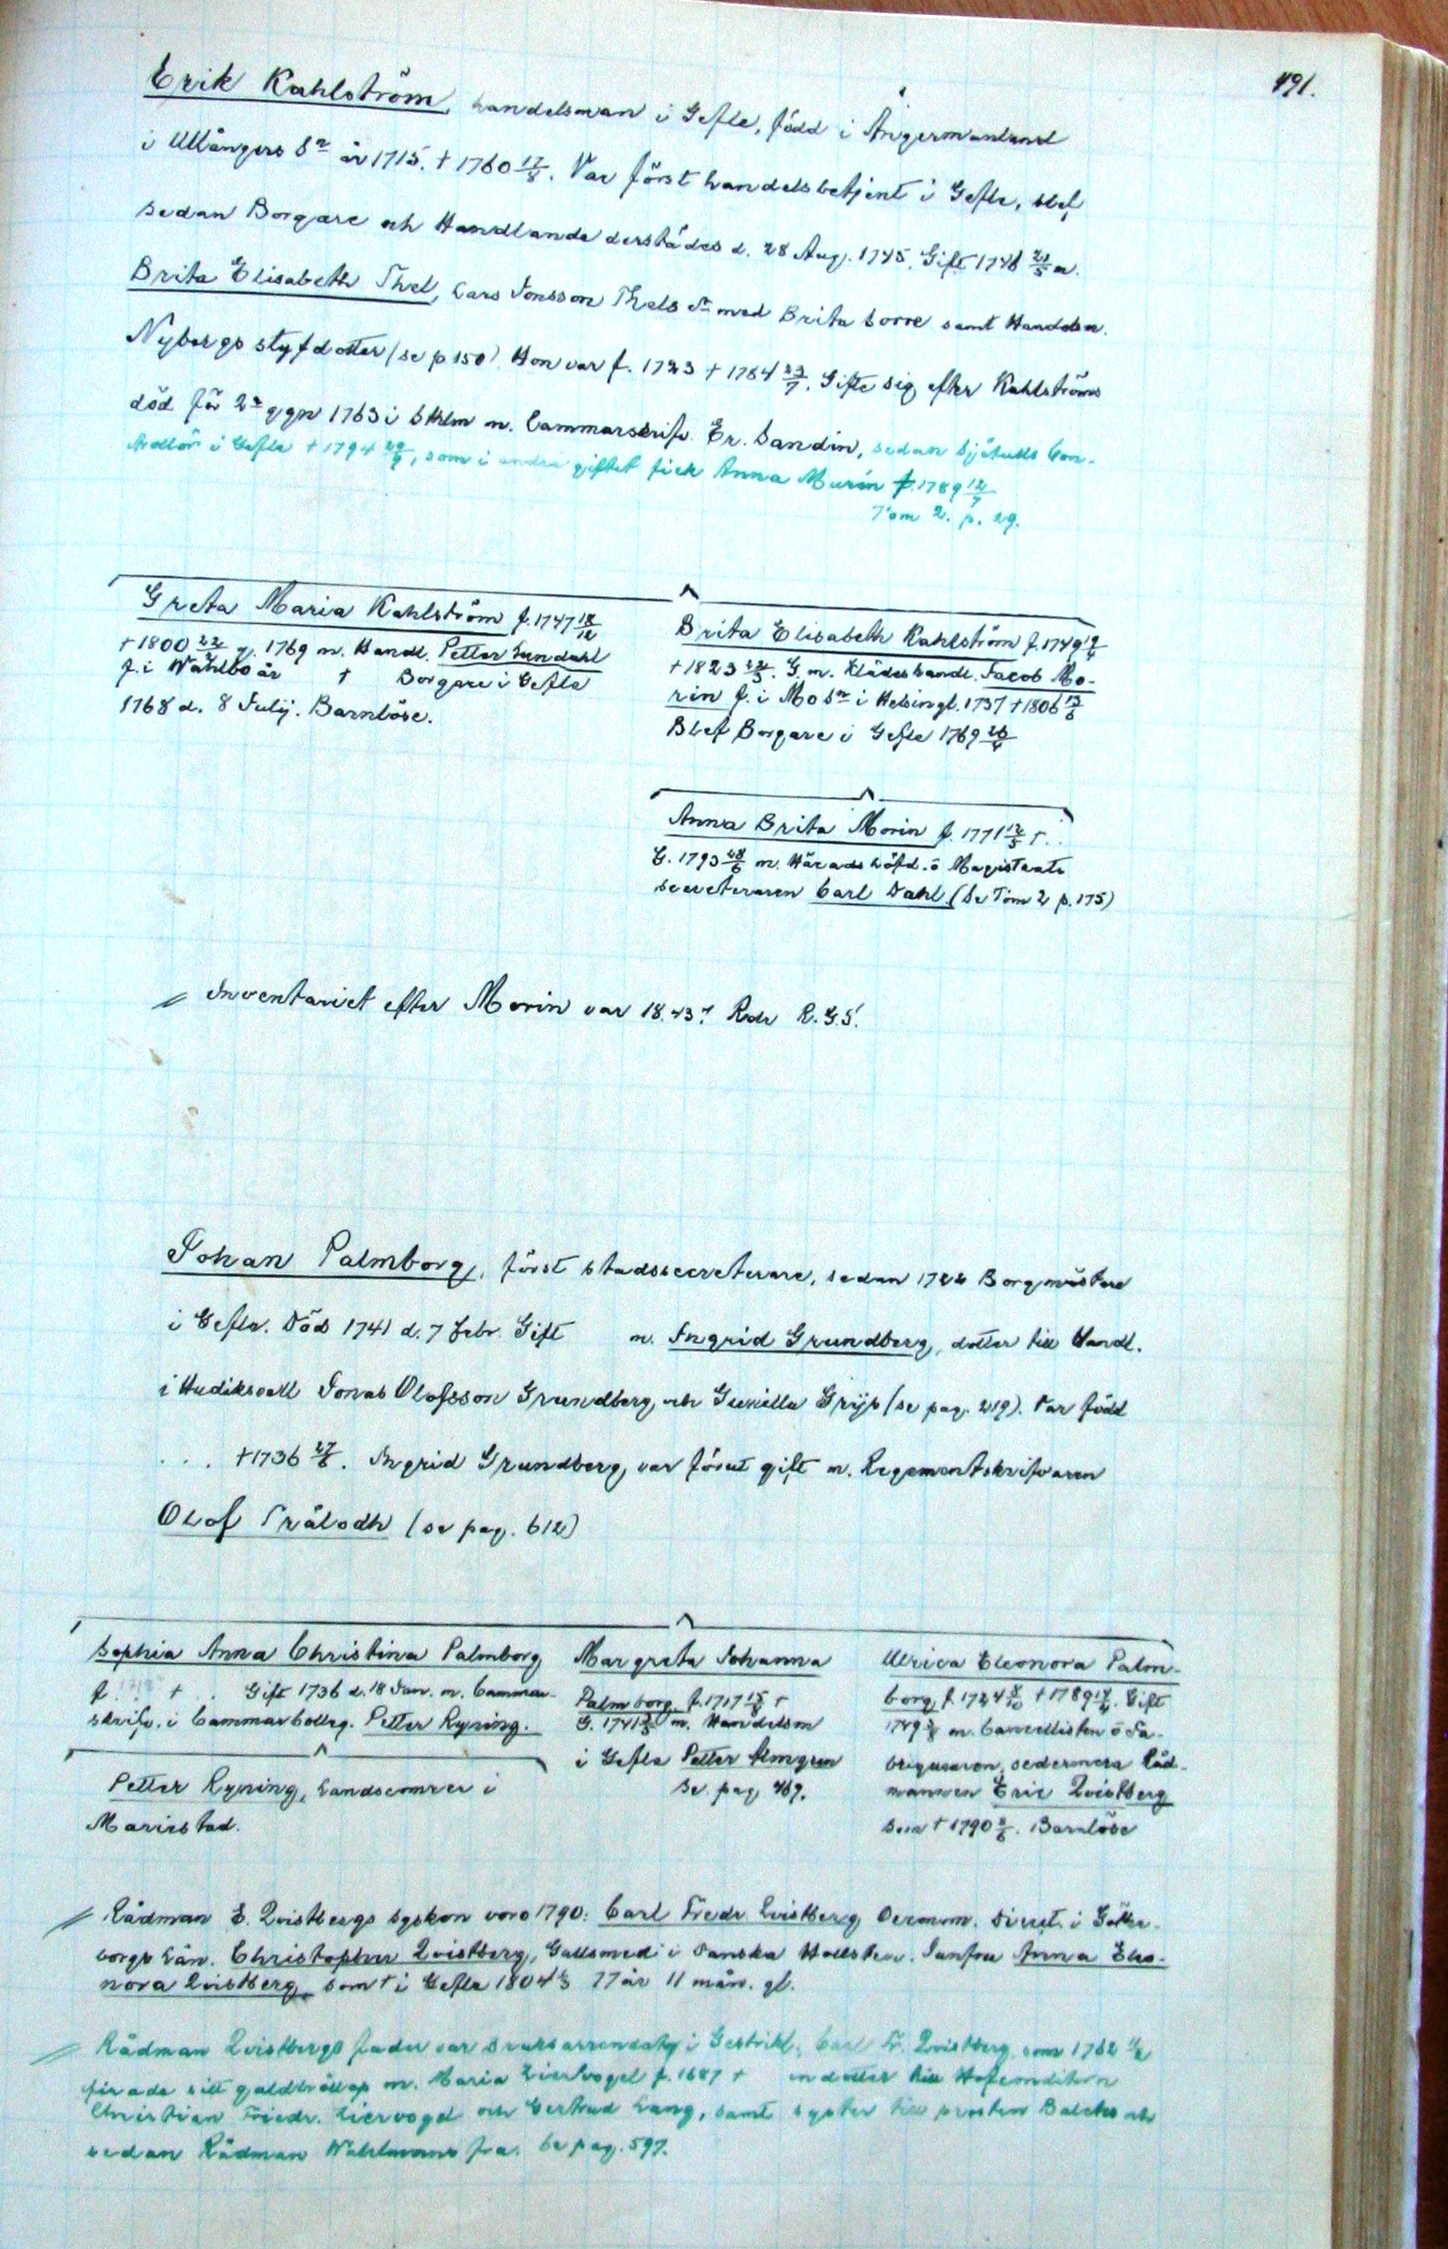 491.
Erik Kahlström, handelsman i Gefle, född i Ångermanland
i Ullångers Sn år 1715. † 1760 17/8. Var först handelsbetjent i Gefle, blef
sedan Borgare och Handlande derstädes d. 28 Aug. 1745. Gift 1746 21/5 m.
Brita Elisabeth Thel, Lars Jonsson Thels dr med Brita Lorre samt Handelsm.
Nybergs styfdotter (se p 150). Hon var f. 1723 † 1784 23/7. Gifte sig efter Kahlströms
död för 2a ggn 1763 i Sthlm m. Cammarskrifv. Er. Sandin, sedan Sjötulls Con-
trollör i Gefle † 1794 29/9, som i andra giftet fick Anna Murin f. 1789 12/7
Tom 2. p. 29.
Greta Maria Kahlström f. 1747 18/12
† 1800 22/2 g. 1769 m. Handl. Petter Sundahl
f. i Wahlbo år † Borgare i Gefle
1768 d. 8 Julij. Barnlöse.
Brita Elisabeth Kahlström f. 1749 19/4
† 1823 22/3. G. m. Klädeshandl. Jacob Mo-
rin f. i Mo Sn i Helsingl. 1737 † 1806 13/6
Blef Borgare i Gefle 1769 26/4
Anna Brita Morin f. 1771 12/5 † . .
G. 1793 28/6 m. Häradshöfd. o Magistrats
secreteraren Carl Dahl. (Se Tom 2 p. 175)
Inventariet efter Morin var 18.437 Rdr R.G.S.
Johan Palmborg, först stadssecreterare, sedan 1722 Borgmästare
i Gefle. Död 1741 d. 7 Febr. Gift m. Ingrid Grundberg, dotter till Handl.
i Hudiksvall Jonas Olofsson Grundberg och Gunilla Grijs (se pag. 219). Var född
. . . † 1736 27/6. Ingrid Grundberg var förut gift m. Regementskrifvaren
Olof Trälodh (se pag. 612)
Sophia Anna Christina Palmborg
f. . . † . Gift 1736 d. 18 Jan. m. Cammar-
skrifv. i Cammarcolleg. Petter Ryning.
Petter Ryning, Landscomrer i
Mariestad.
Margreta Johanna
Palmborg f. 1717 15/8 †
G. 1741 m. Handelsm
i Gefle Petter Almgren
Se. pag 469.
Ulrica Eleonora Palm-
borg f. 1724 8/10 † 1789 17/2. Gift
1749 m. Cancellisten o Fa-
briqueuren, sedermera Råd-
mannen Eric Qvistberg
som † 1790 2/6. Barnlöse
Rådman E. Qvistbergs syskon voro 1790: Carl Fredr Qvistberg Oeconom. Direct. i Göthe-
borgs Län. Christopher Qvistberg, Gullsmed i Danska Hollsten. Jungfru Anna Eleo-
nora Qvistberg, som † i Gefle 1804 77 år 11 mån. gl.
Rådman Qvistbergs fader var bruksarrendator i Gestrikl. Carl Fr. Qvistberg, som 1762
firade sitt guldbröllop m. Maria Ziervogel f. 1687 † en dotter till Hofconditorn
Christian Friedr. Ziervogel och Gertrud Lang, samt syster till prosten Balcks och
sedan Rådman Wahlmans fru. Se pag. 597.